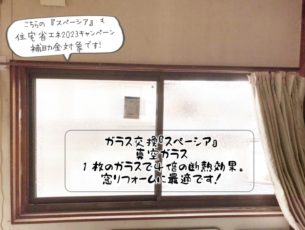 こちらの『スペーシア』も
住宅省エネ2023キャンペーン
補助金対象です!
ガラス交換『スペーシア』
真空ガラス
1枚のガラスで4倍の断熱効果。
窓リフォームに最適です!